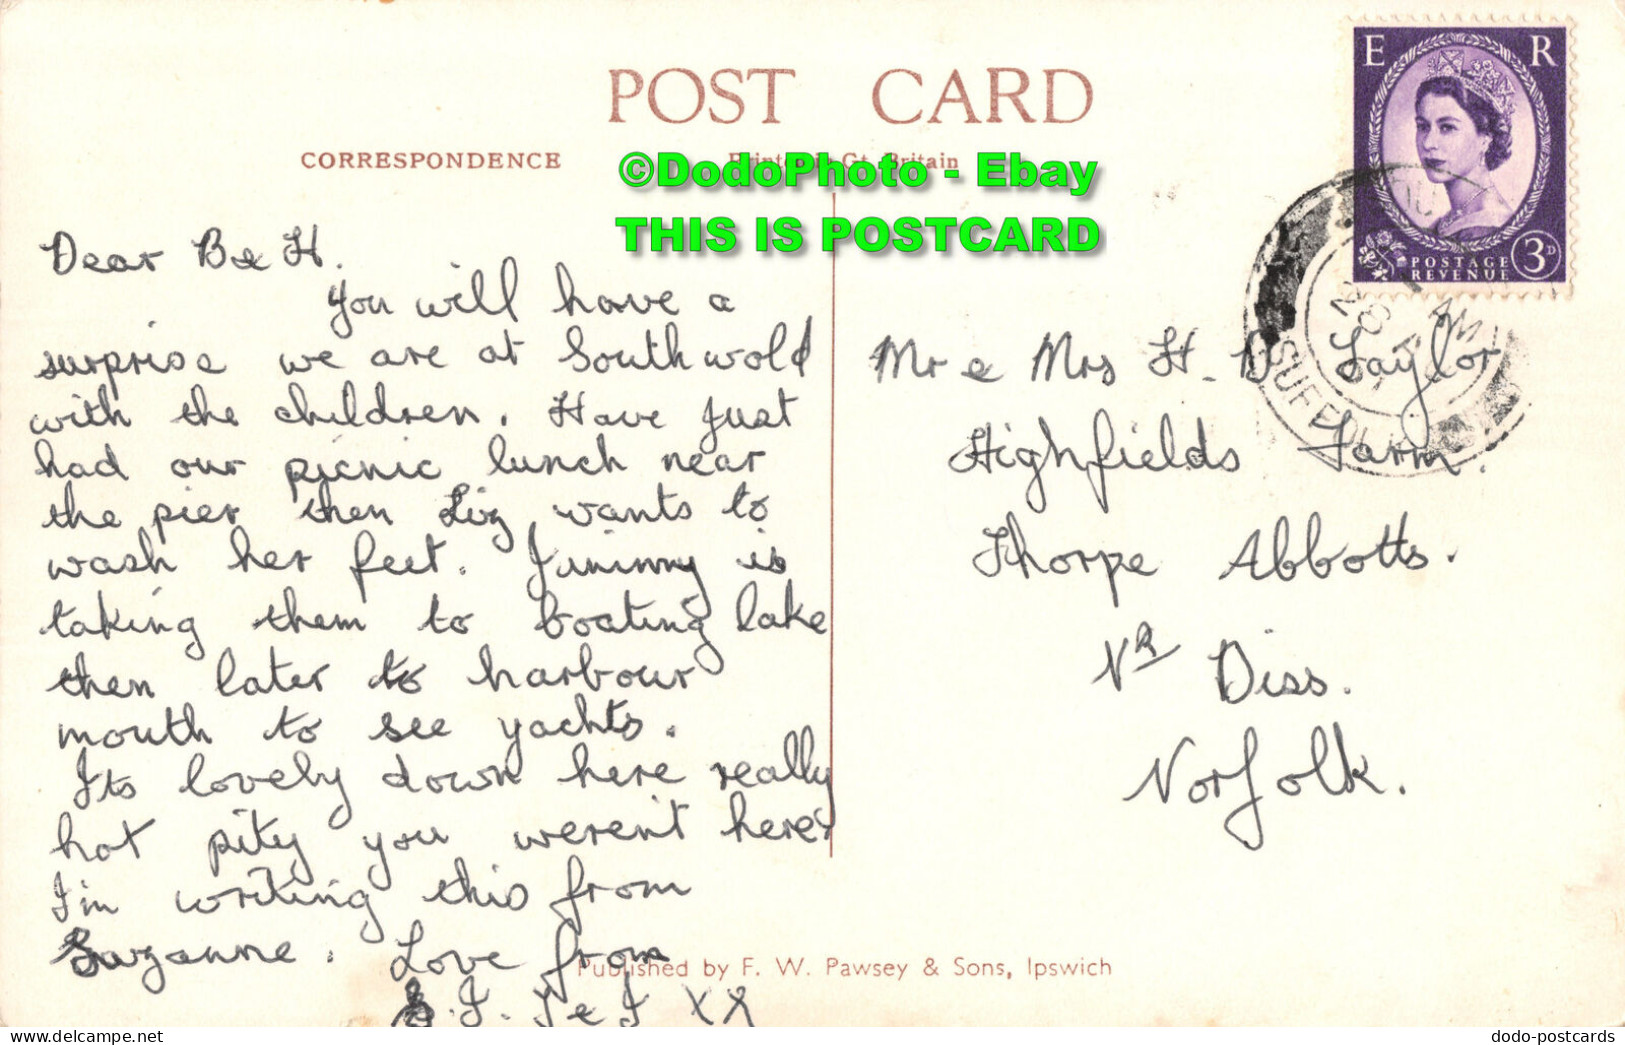 POST CARD
CORRESPONDENCE
Printed in Gt. Britain
©DodoPhoto - Ebay
THIS IS POSTCARD
E R
POSTAGE
REVENUE
3D
AM
28
SUFFOLK
Dear B & H.
You will have a
surprise we are at Southwold
with the children. Have just
had our picnic lunch near
the pier then Liz wants to
wash her feet. Jimmy is
taking them to boating lake
then later to harbour
mouth to see yachts.
Its lovely down here really
hot pity you weren't here.
I'm writing this from
Suzanne. Love from
J. J & J XX
Mr & Mrs H. D. Taylor
Highfields Farm.
Thorpe Abbotts.
Nr Diss.
Norfolk.
Published by F. W. Pawsey & Sons, Ipswich
dodo-postcards